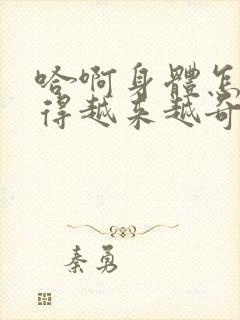 哈啊身體怎
得越来越奇
秦勇